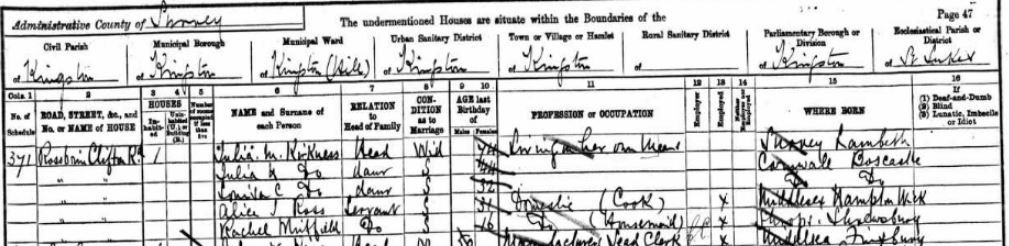 Administrative County of Surrey
The undermentioned Houses are situate within the Boundaries of the
Page 47
Civil Parish
Municipal Borough
Municipal Ward
Urban Sanitary District
Town or Village or Hamlet
Rural Sanitary District
Parliamentary Borough or Division
Ecclesiastical Parish or District
of Kingston
of Kingston
of Kingston (Hill)
of Kingston
of Kingston
of
of Kingston
of St Lukes
Cols. 1 2 3 4 5 6 7 8 9 10 11 12 13 14 15 16
No. of Schedule
ROAD, STREET, &c., and No. or NAME of HOUSE
HOUSES
Inhabited
Uninhabited (U.) or Building (B.)
Number of rooms occupied if less than five
NAME and Surname of each Person
RELATION to Head of Family
CONDITION as to Marriage
AGE last Birthday of
Males
Females
PROFESSION or OCCUPATION
Employer
Employed
Neither Employer nor Employed
WHERE BORN
If
(1) Deaf-and-Dumb
(2) Blind
(3) Lunatic, Imbecile or Idiot
371 Rosebrin Clifton Rd 1 Julia M. Kirkness Head Wid 74 Living on her own Means Surrey Lambeth
" " Julia Do daur S 44 Cornwall Boscastle
" " Louisa C Do daur S 32 Do Do
" " Alice J Ross Servant S 31 Domestic (Cook) X Middlesex Hampton Wick
" " Rachel Do S 16 Do (Housemaid) X Shrewsbury
Lead Clerk X Middlesex